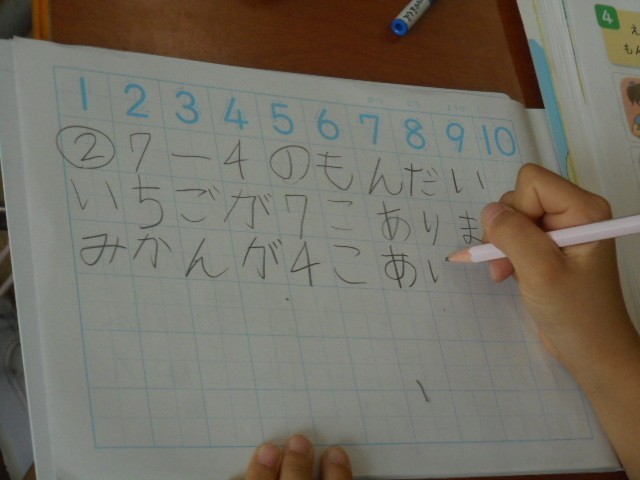 1 2 3 4 5 6 7 8 9 10
②7-4のもんだい
いちごが7こありま
みかんが4こあい
4
え
もん